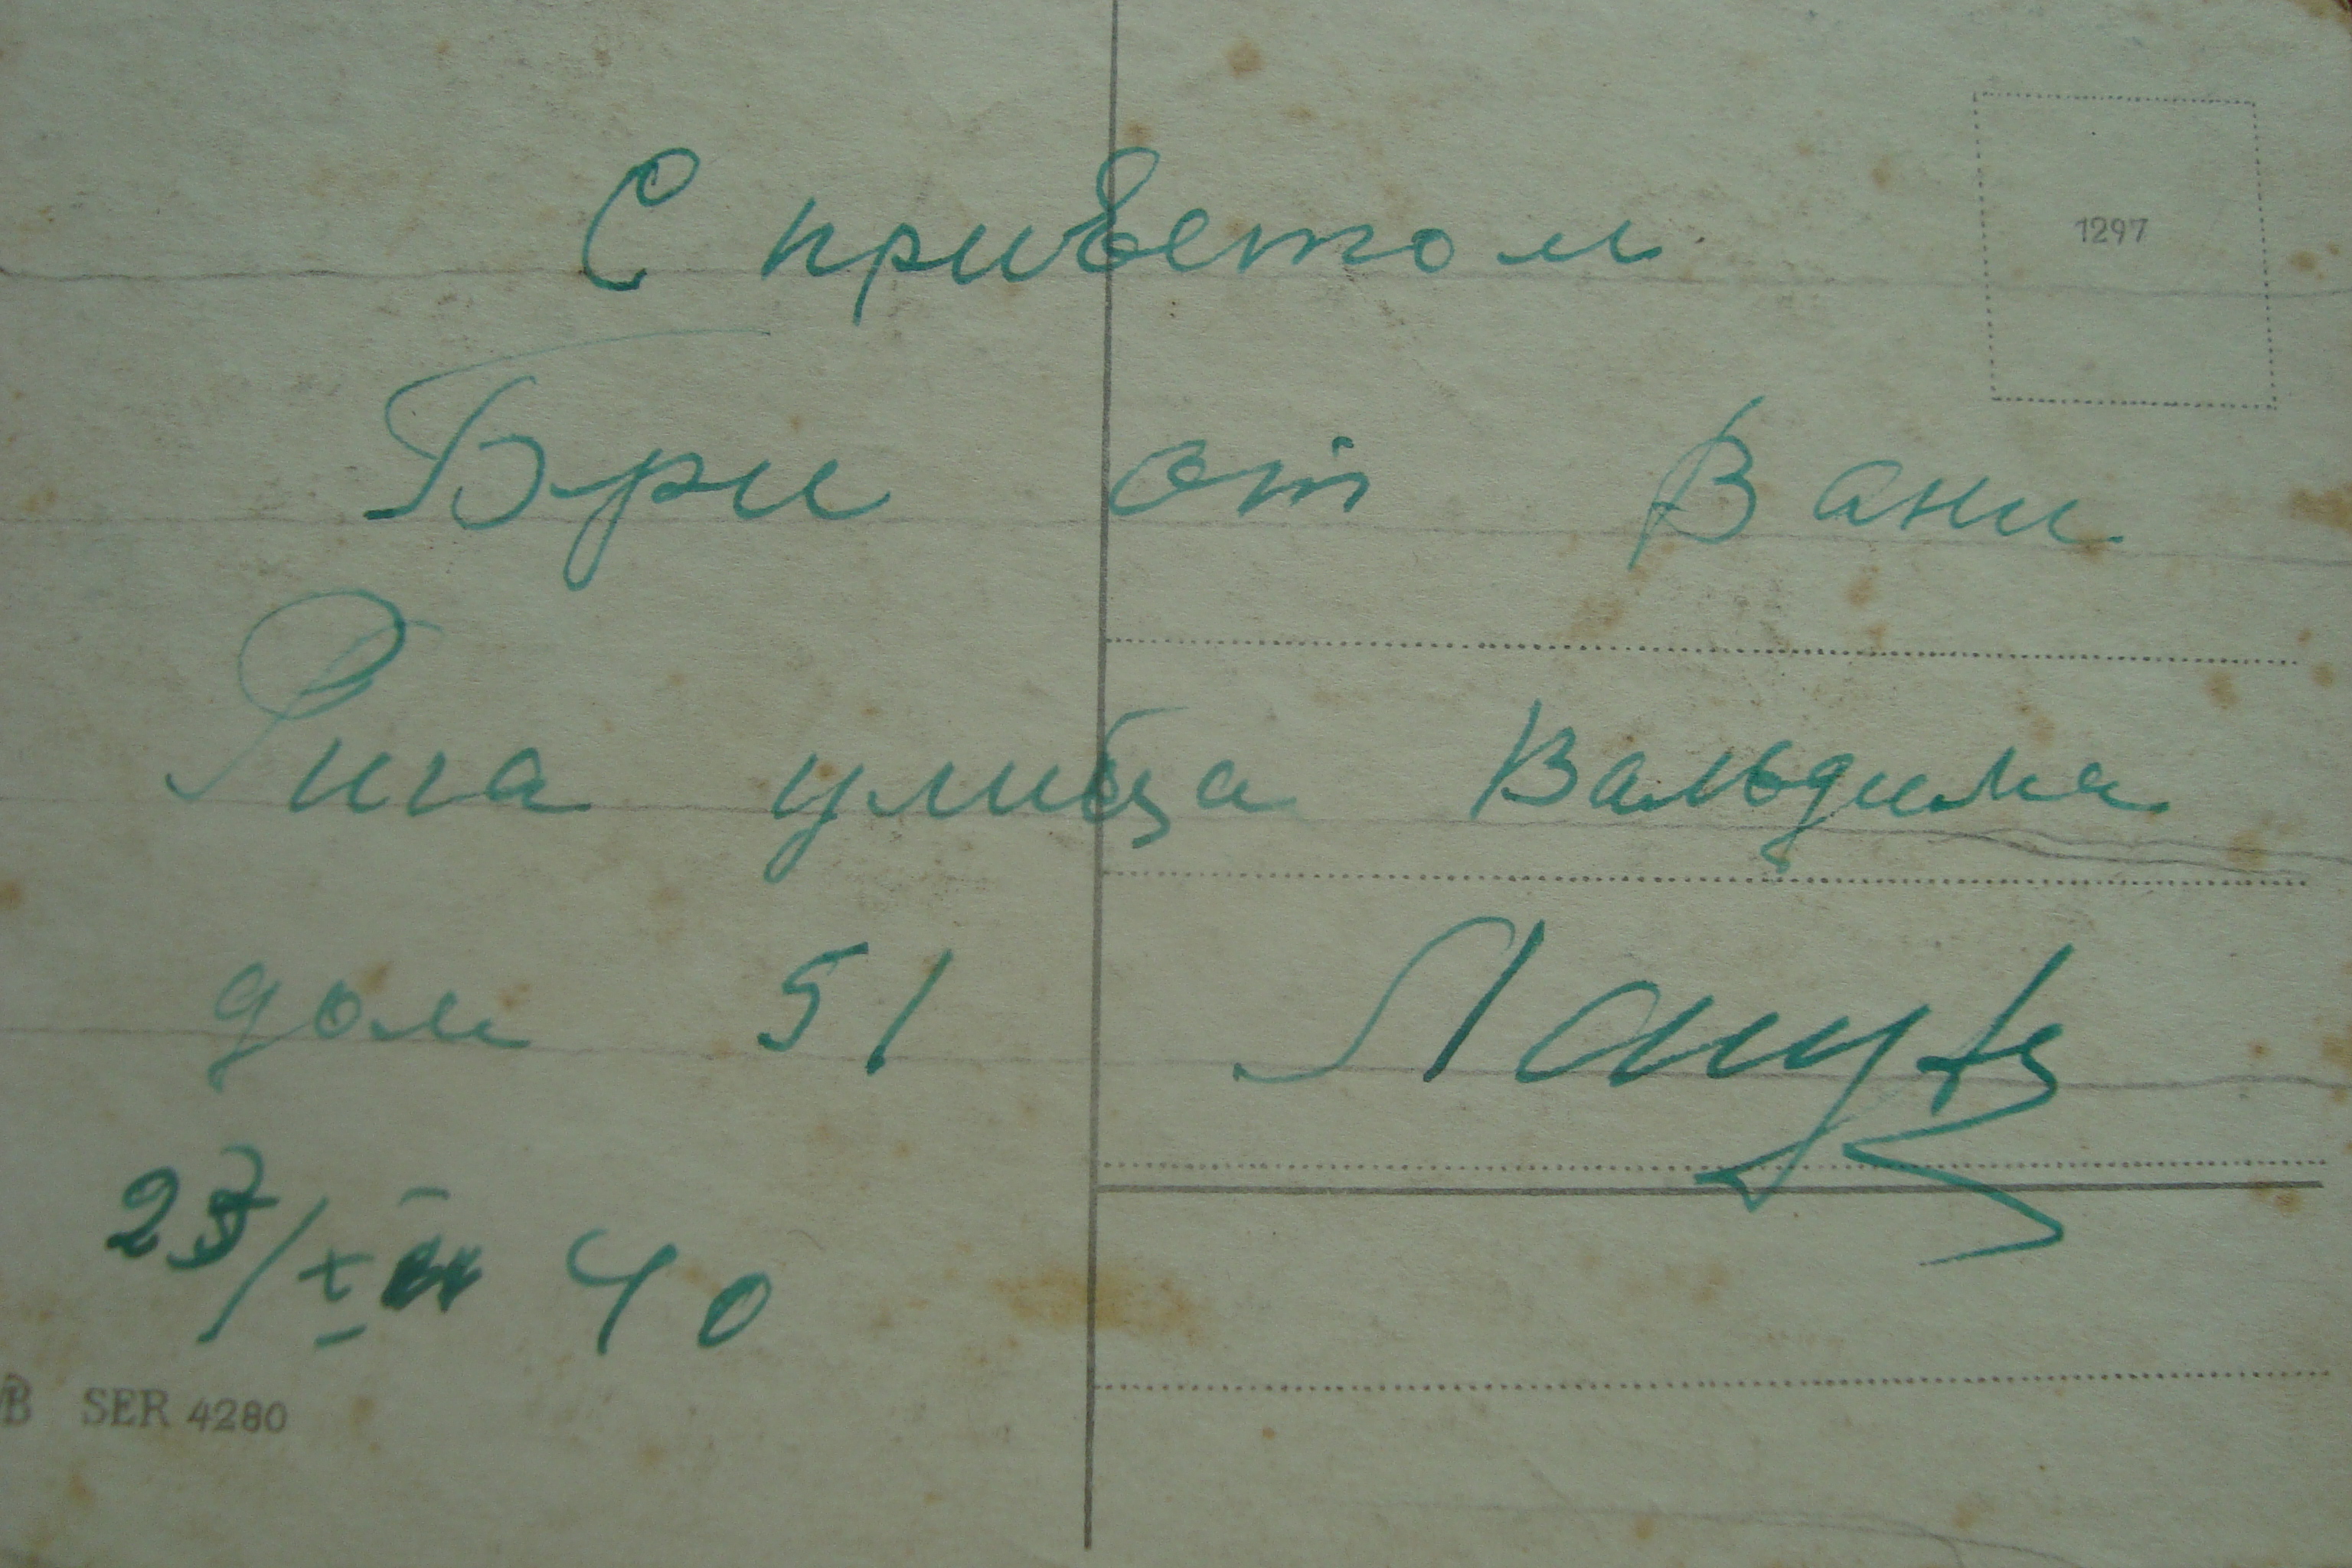 С приветом
1297
Бри от Вани
Рига улица Вальдима
дом 51
23/ 40
B SER 4280